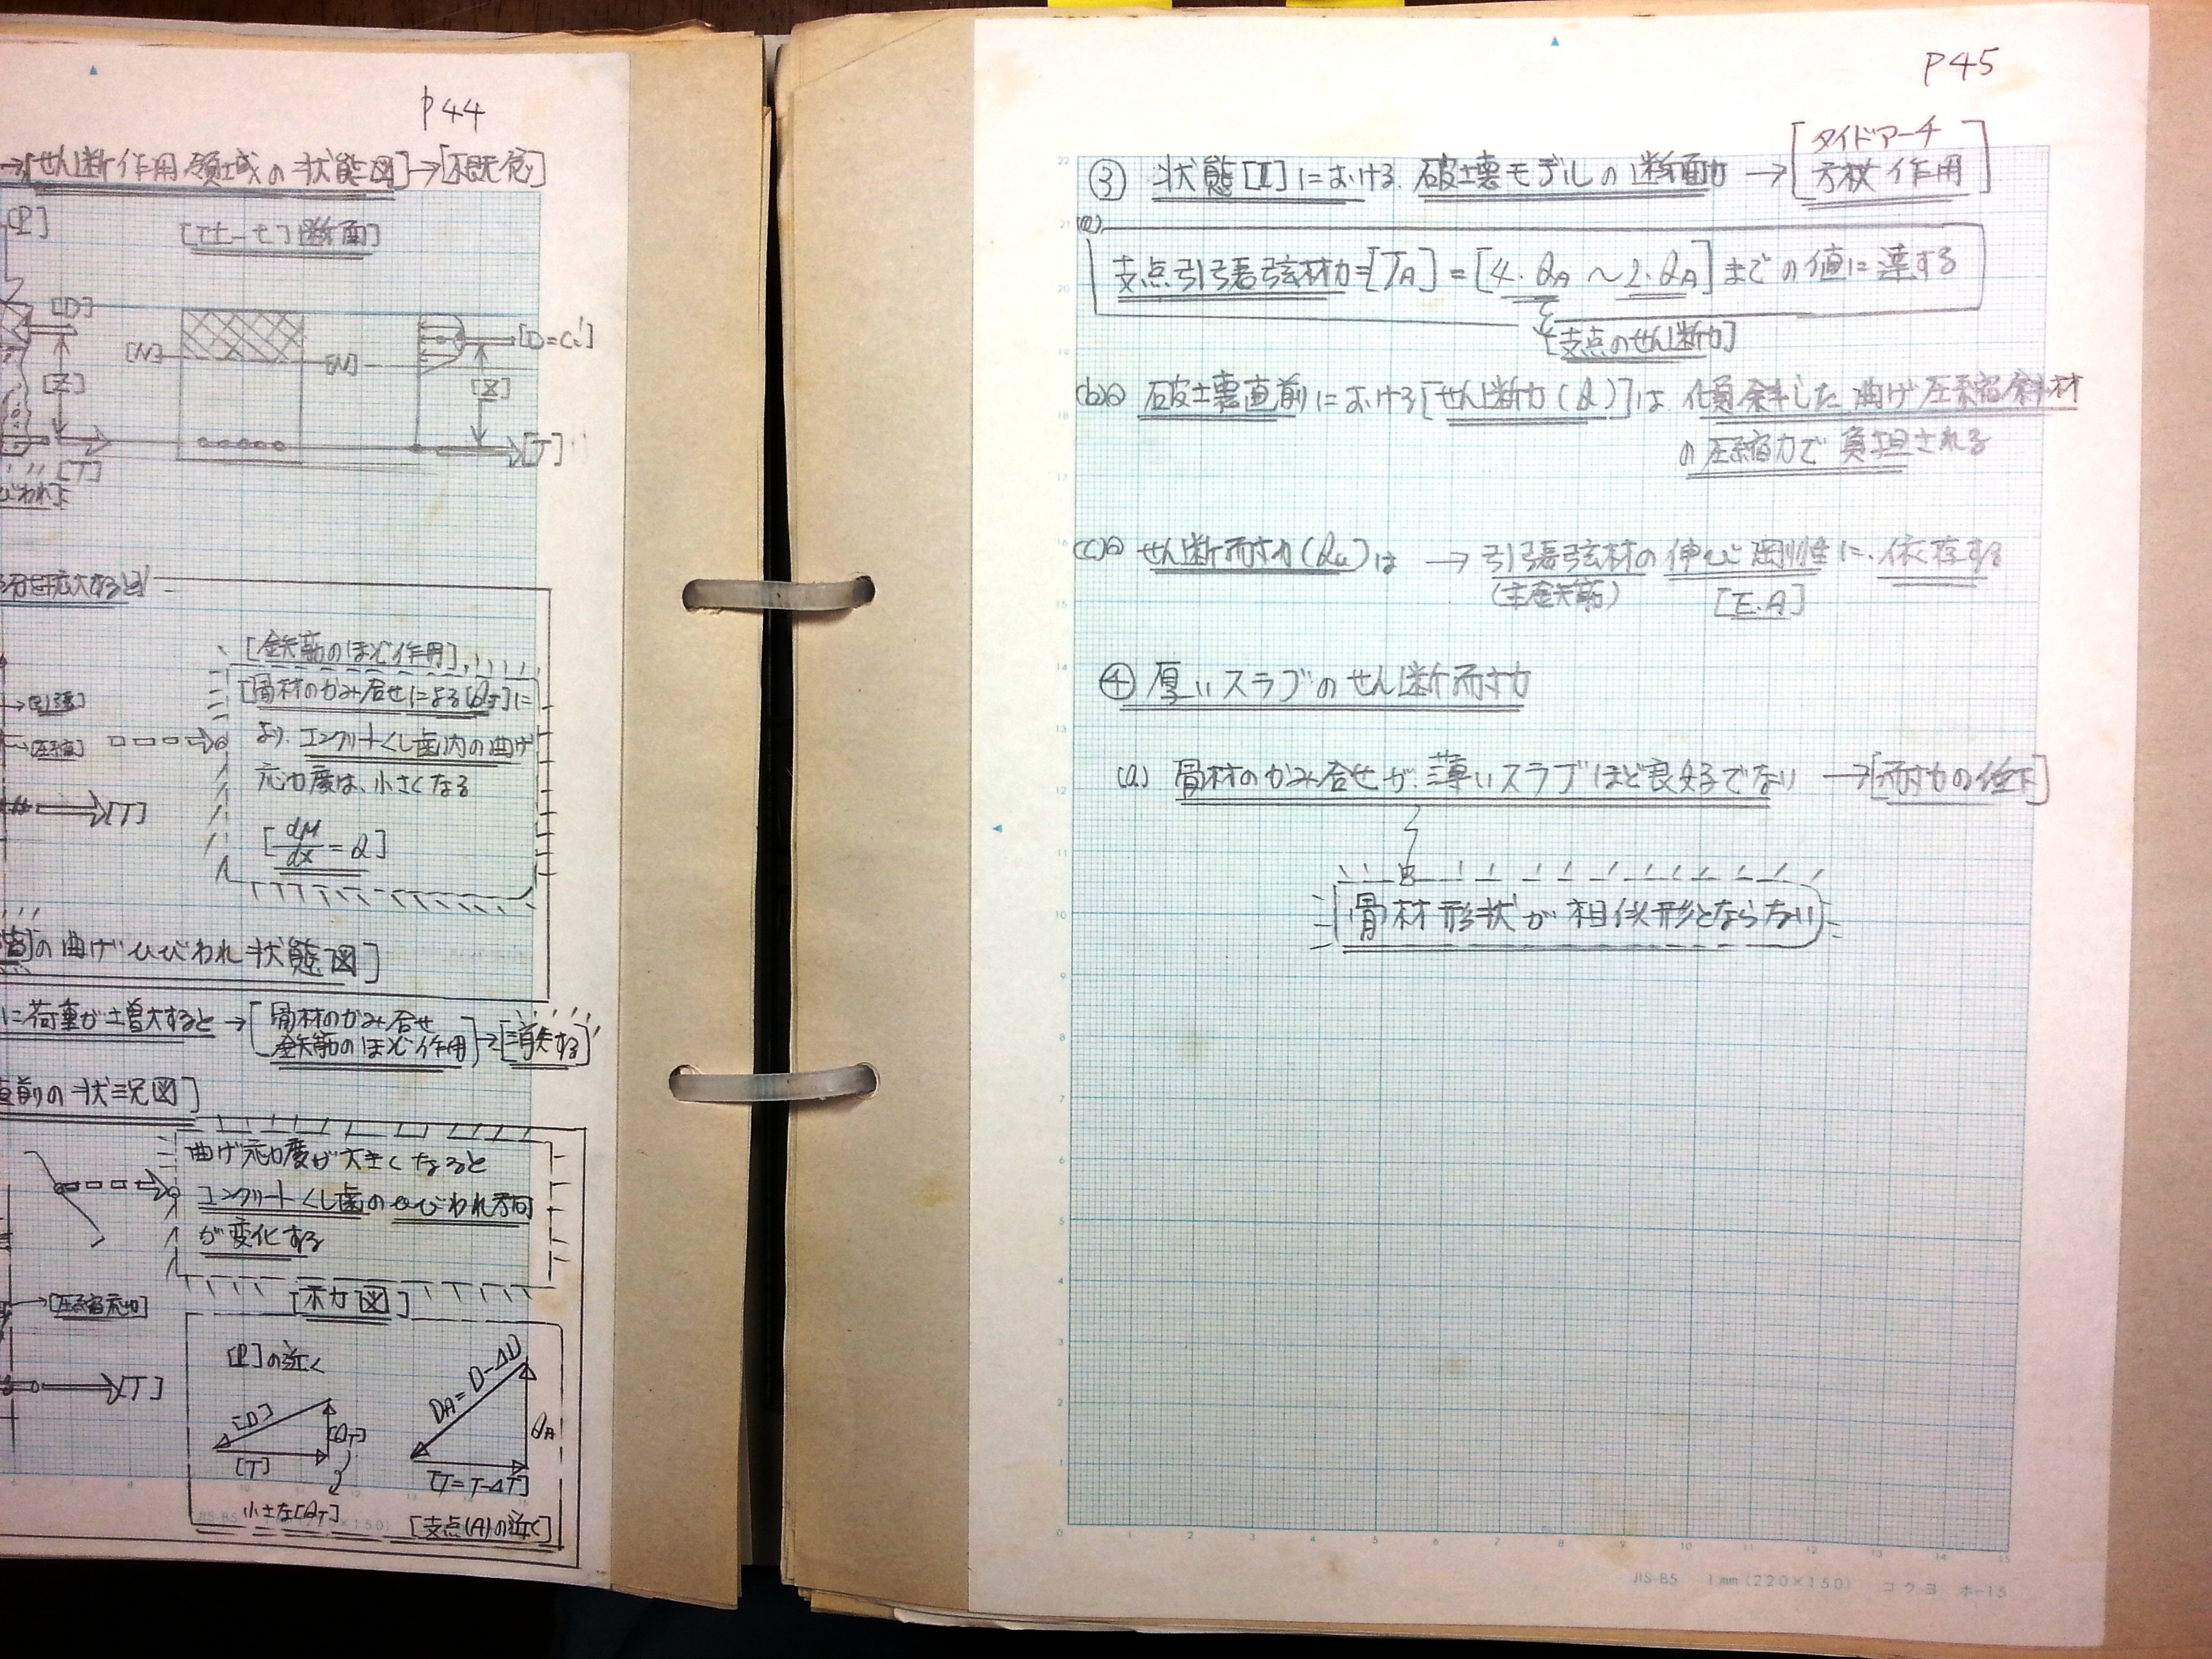 P44
→[せん断作用領域の状態図]→[概念]
[P]
[エセ-セ]断面]
[D]
[N]
[N]
[D=C']
[Z]
[Z]
[T]
[T]
びわれ]
[鉄筋のほぞ作用]
[骨材のかみ合せによる[QJ]に
→[引張]
より、コンクリートくし歯内の曲げ
→[圧縮]
応力度は、小さくなる
[T]
[dM/dx=Q]
の曲げひびわれ状態図]
に荷重が増大すると→[骨材のかみ合せ
鉄筋のほぞ作用]→[消失する]
直前の状況図]
曲げ応力度が大きくなると
コンクリートくし歯のひびわれ方向
が変化する
→[圧縮応力]
[示力図]
[P]の近く
DA=D-ΔD
[T]
[D]
[QT]
QA
[T]
[T=T-ΔT]
小さな[QT]
[支点(A)の近く]
P45
[タイドアーチ
③ 状態[Ⅱ]における破壊モデルの断面力→[方杖作用]
(a)
支点引張弦材力=[TA]=[4・QA～2・QA]までの値に達する
[支点のせん断力]
(b) 破壊直前における[せん断力(Q)]は傾斜した曲げ圧縮斜材
の圧縮力で負担される
(c) せん断耐力(Qu)は → 引張弦材の伸び剛性に依存する
(主鉄筋) [E.A]
④ 厚いスラブのせん断耐力
(a) 骨材のかみ合せが薄いスラブほど良好でない →[耐力の低下]
骨材形状が相似形とならない
JIS-B5 1mm(220×150) コクヨ ホ-15